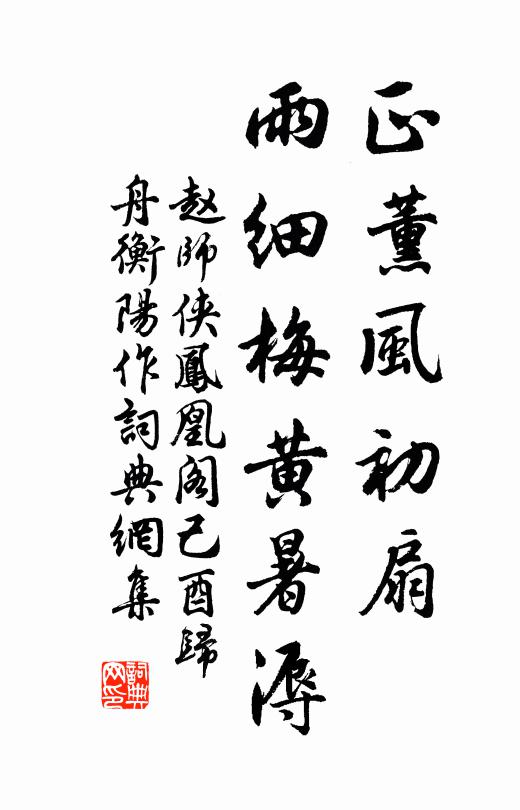 正薰風初扇
雨細梅黃暑溽
赵師侠鳳凰阁己酉歸
舟衡陽作詞典網集
詞典网印